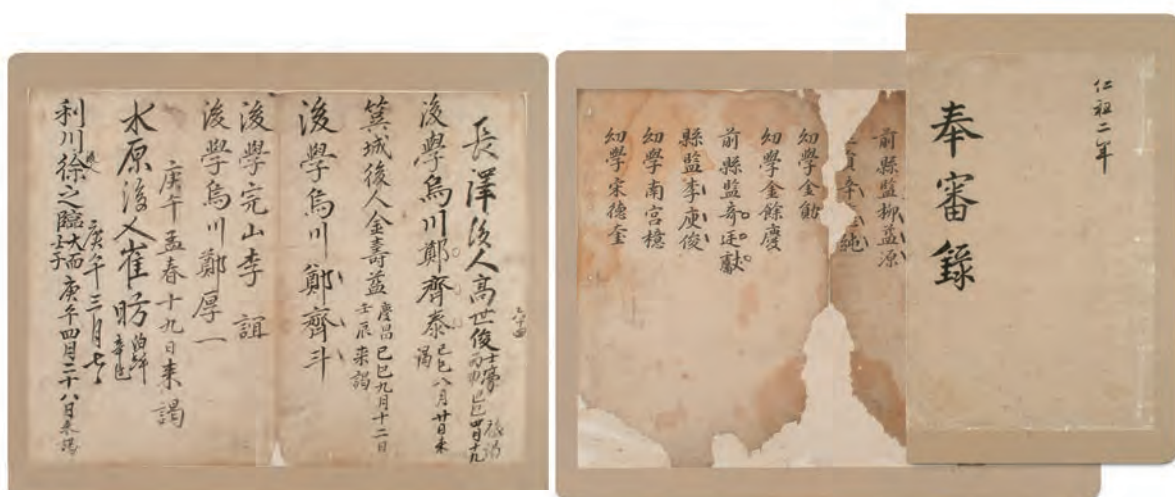 仁祖二年
奉審錄
前縣監柳益源
純
幼學金勛
幼學金餘慶
前縣監奇廷獻
縣監李庾俊
幼學南宮檍
幼學宋德奎
長澤後人高世俊士豪
丙 己巳四月十九
後學烏川鄭齊泰己巳八月廿日來
謁
箕城後人金壽益慶昌己巳九月十二日
壬辰來謁
後學烏川鄭齊斗
後學完山李誼
後學烏川鄭厚一
庚午孟春十九日來謁
水原後人崔昈
辛巳
庚午三月七
利川後徐之臨大而庚午四月二十八日來謁
壬子